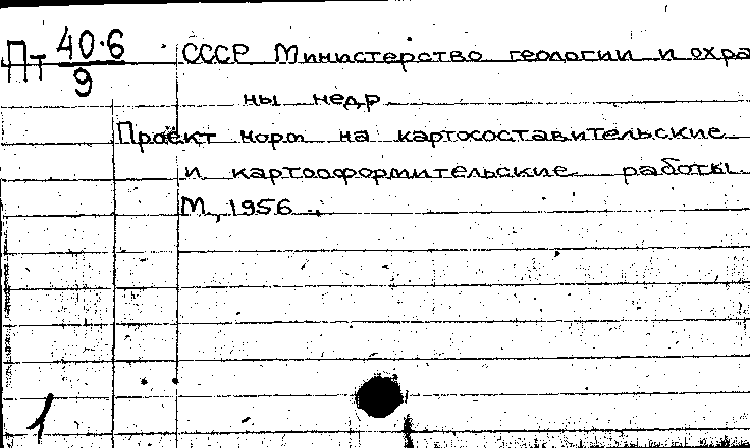 Пт 40-6
9
СССР Министерство геологии и охра
ны недр
Проект норм на картосоставительские
и картооформительские работы.
М., 1956.
1